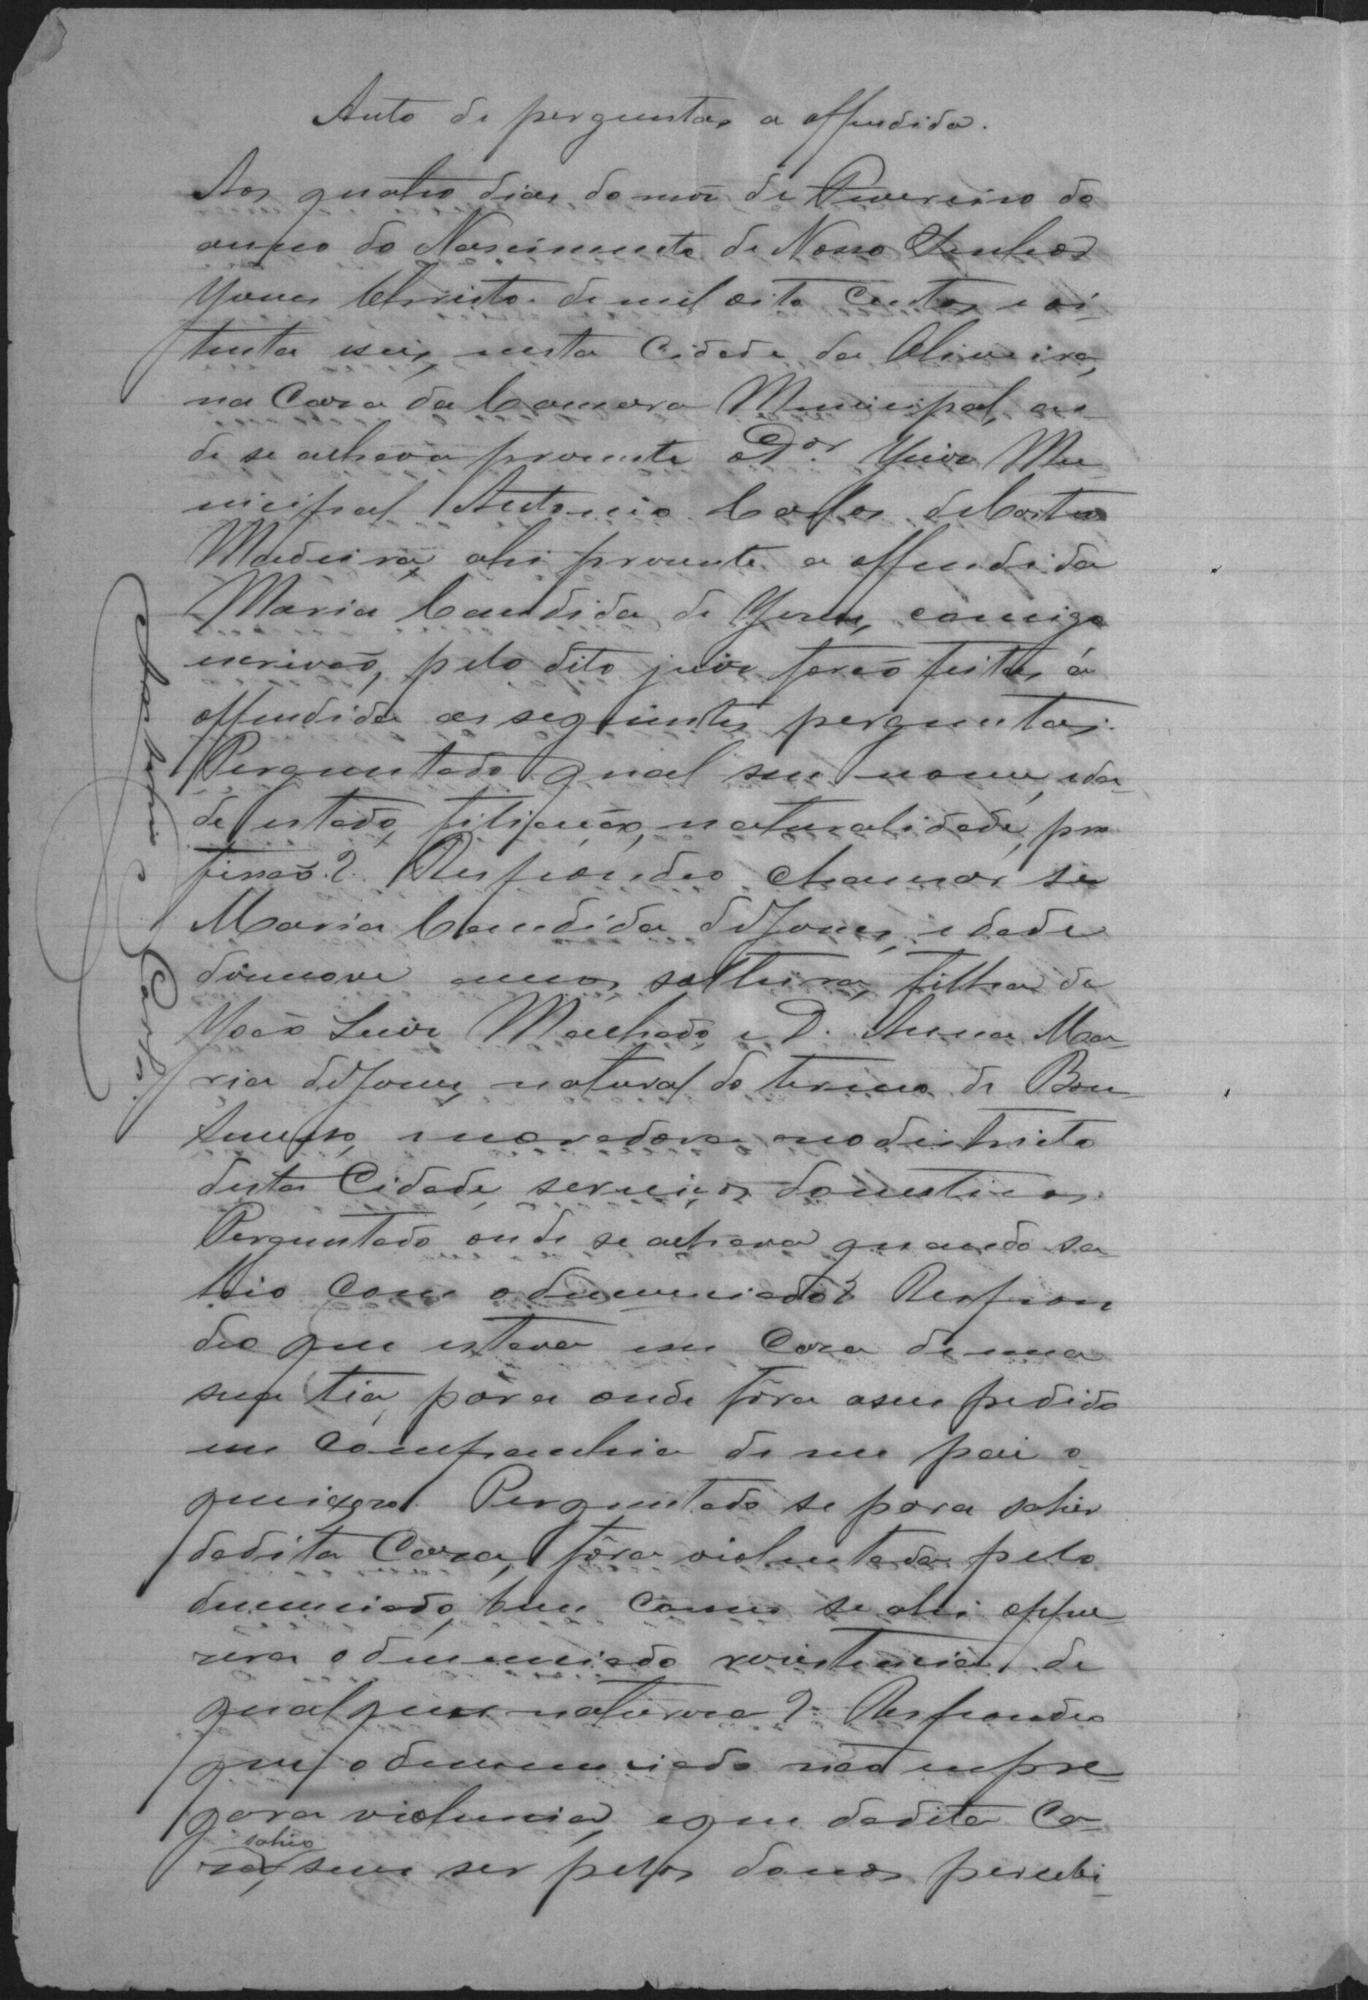 Auto de perguntas a offendida.
Aos quatro dias do mes de Fevereiro do
anno do Nascimento de Nosso Senhor
Jesus Christo de mil oito centos e oi-
tenta e seis, nesta Cidade da Oliveira,
na Casa da Camara Municipal, on-
de se achava presente o Dor. Juiz Mu-
nicipal Antonio Carlos de Castro
Madeira, ahi presente a offendida
Maria Candida de Jesus, comigo
escrivão, pelo dito juiz forão feitas á
offendida as seguintes perguntas:
Perguntado qual seu nome, ida-
de, estado, filiação, naturalidade, pro
fissão? Respondeo chamar se
Maria Candida de Jesus, idade
dizenove annos, solteira, filha de
João Luiz Machado, e D. Anna Ma-
ria de Jesus, natural do termo de Bom
Sucesso, moradora no districto
desta Cidade, serviços domesticos.
Perguntado onde se achava quando sa-
hio com o denunciado? Respon
deo que estava em casa de uma
sua tia, para onde fôra a seu pedido
em companhia de seu pai o
queixoso. Perguntado se para sahir
da dita Casa, fôra violentada pelo
denunciado, bem como se ahi oppu-
zera o denunciado resistencia de
qualquer natureza? Respondeo
que o denunciado não empre-
gara violencia, e que da dita Ca-
sahio
sa, sem ser pelos donos percebi-
Carlos